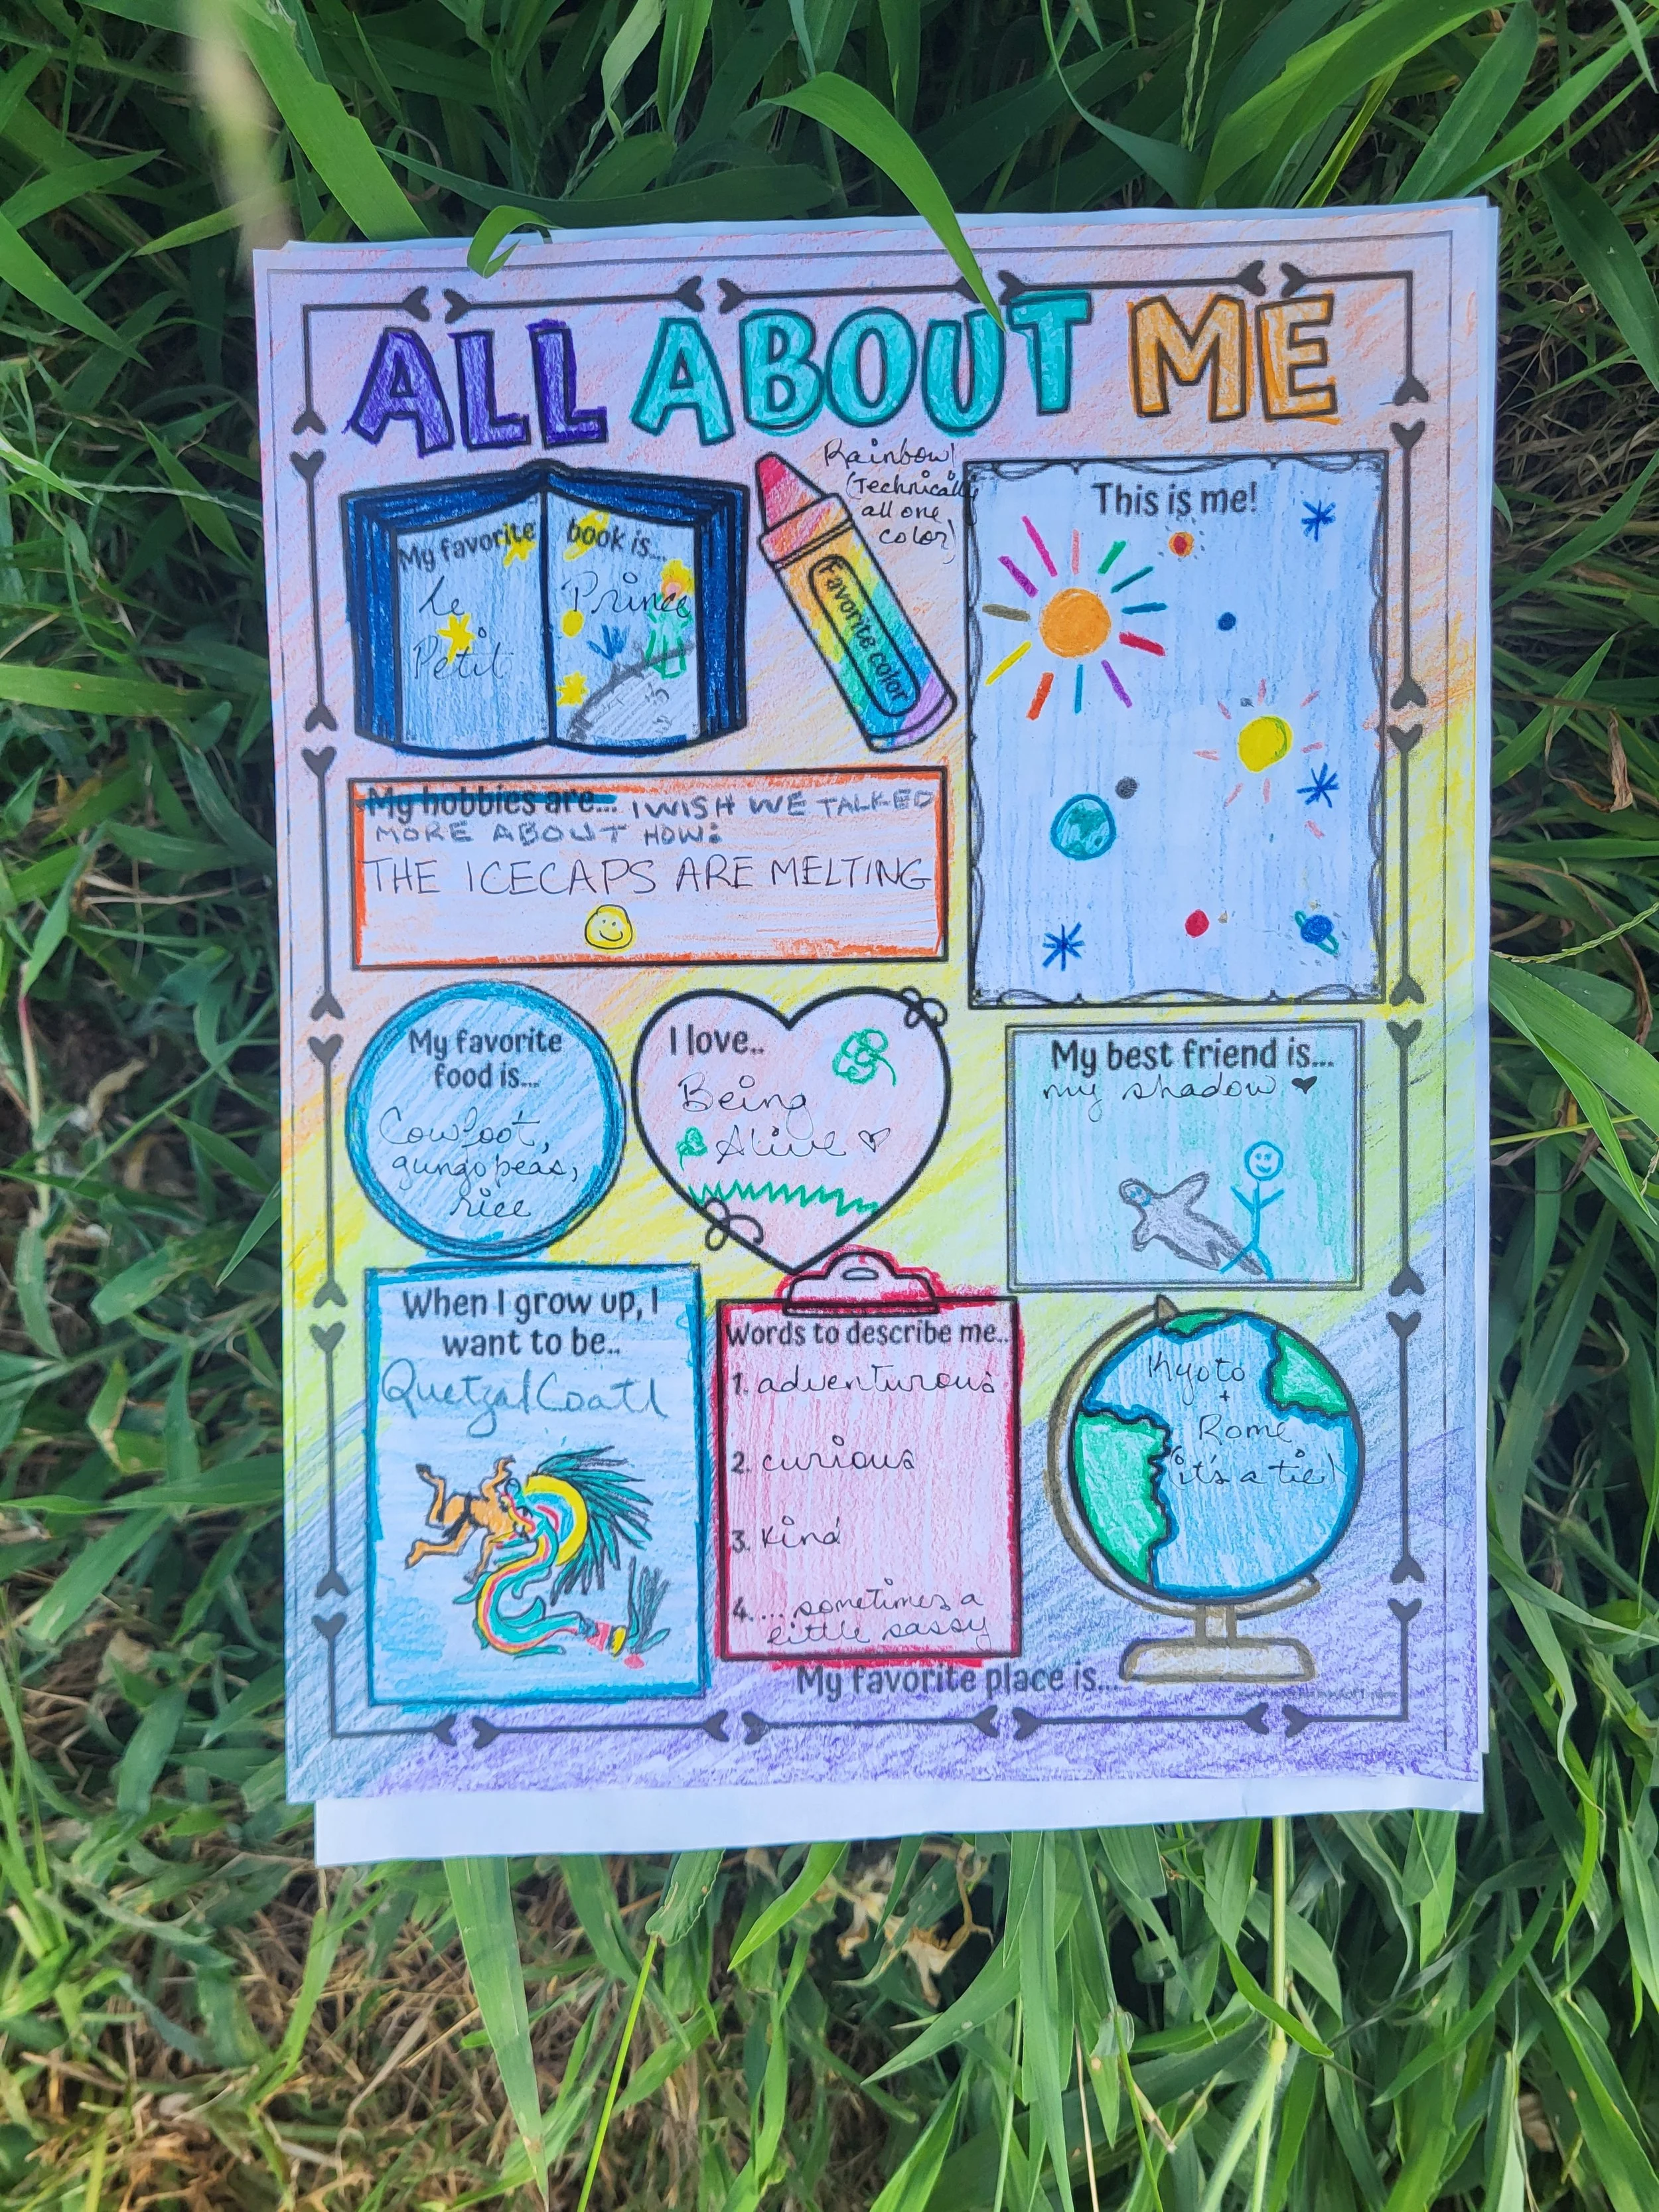 ALL ABOUT ME
My favorite book is...
Le Prince
Petit
Rainbow!
(Technically
all one
color)
Favorite color
This is me!
My hobbies are... I WISH WE TALKED
MORE ABOUT HOW:
THE ICECAPS ARE MELTING
My favorite
food is...
Cowfoot,
gungo peas,
rice
I love..
Being
Alive
My best friend is...
my shadow
When I grow up, I
want to be..
QuetzalCoatl
Words to describe me..
1. adventurous
2. curious
3. kind
4. ... sometimes a
little sassy
Kyoto
+
Rome
(it's a tie)
My favorite place is...